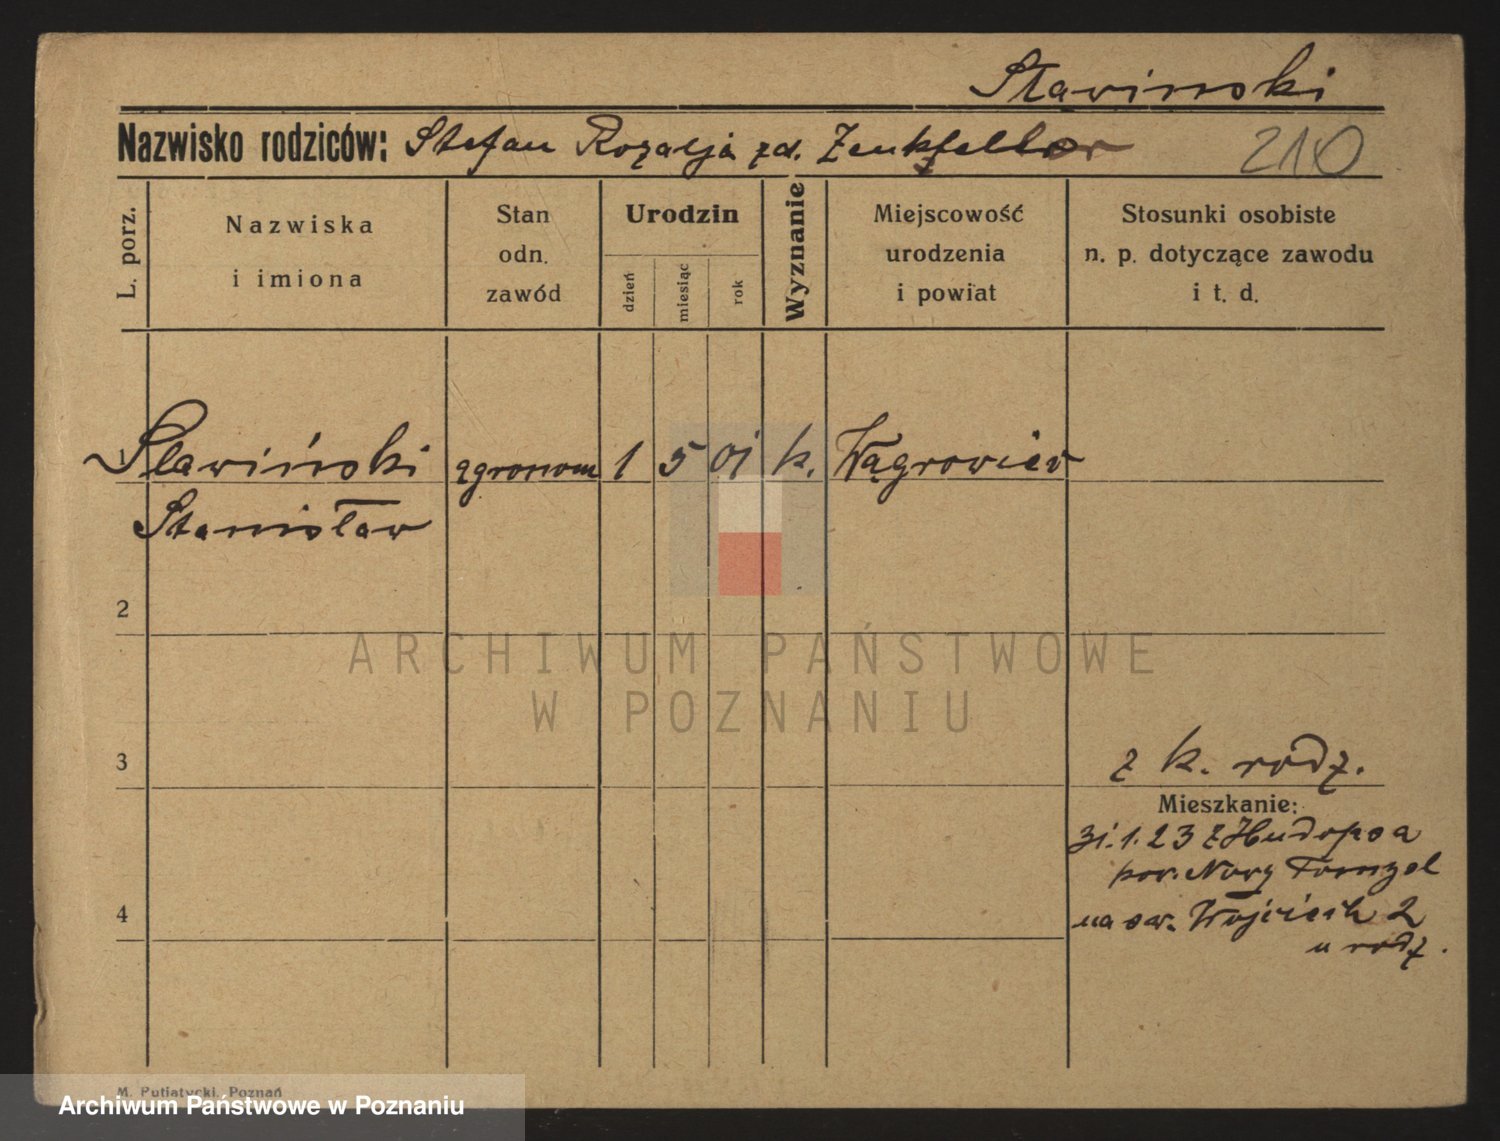 Sławinski
Nazwisko rodziców: Stefan Rozalja zd. 210
L. porz.
Nazwiska
i imiona
Stan
odn.
zawód
Urodzin
dzień
miesiąc
rok
Wyznanie
Miejscowość
urodzenia
i powiat
Stosunki osobiste
n. p. dotyczące zawodu
i t. d.
1 Sławiński agronom 1 5 01 k. Wągrowiec
Stanisław
2
ARCHIWUM PAŃSTWOWE
W POZNANIU
3
z k. rodz.
Mieszkanie:
31.1.23 z
pow. Nowy Tomyśl
4
na św. Wojciech 2
u rodz.
M. Putiatycki, Poznań
Archiwum Państwowe w Poznaniu